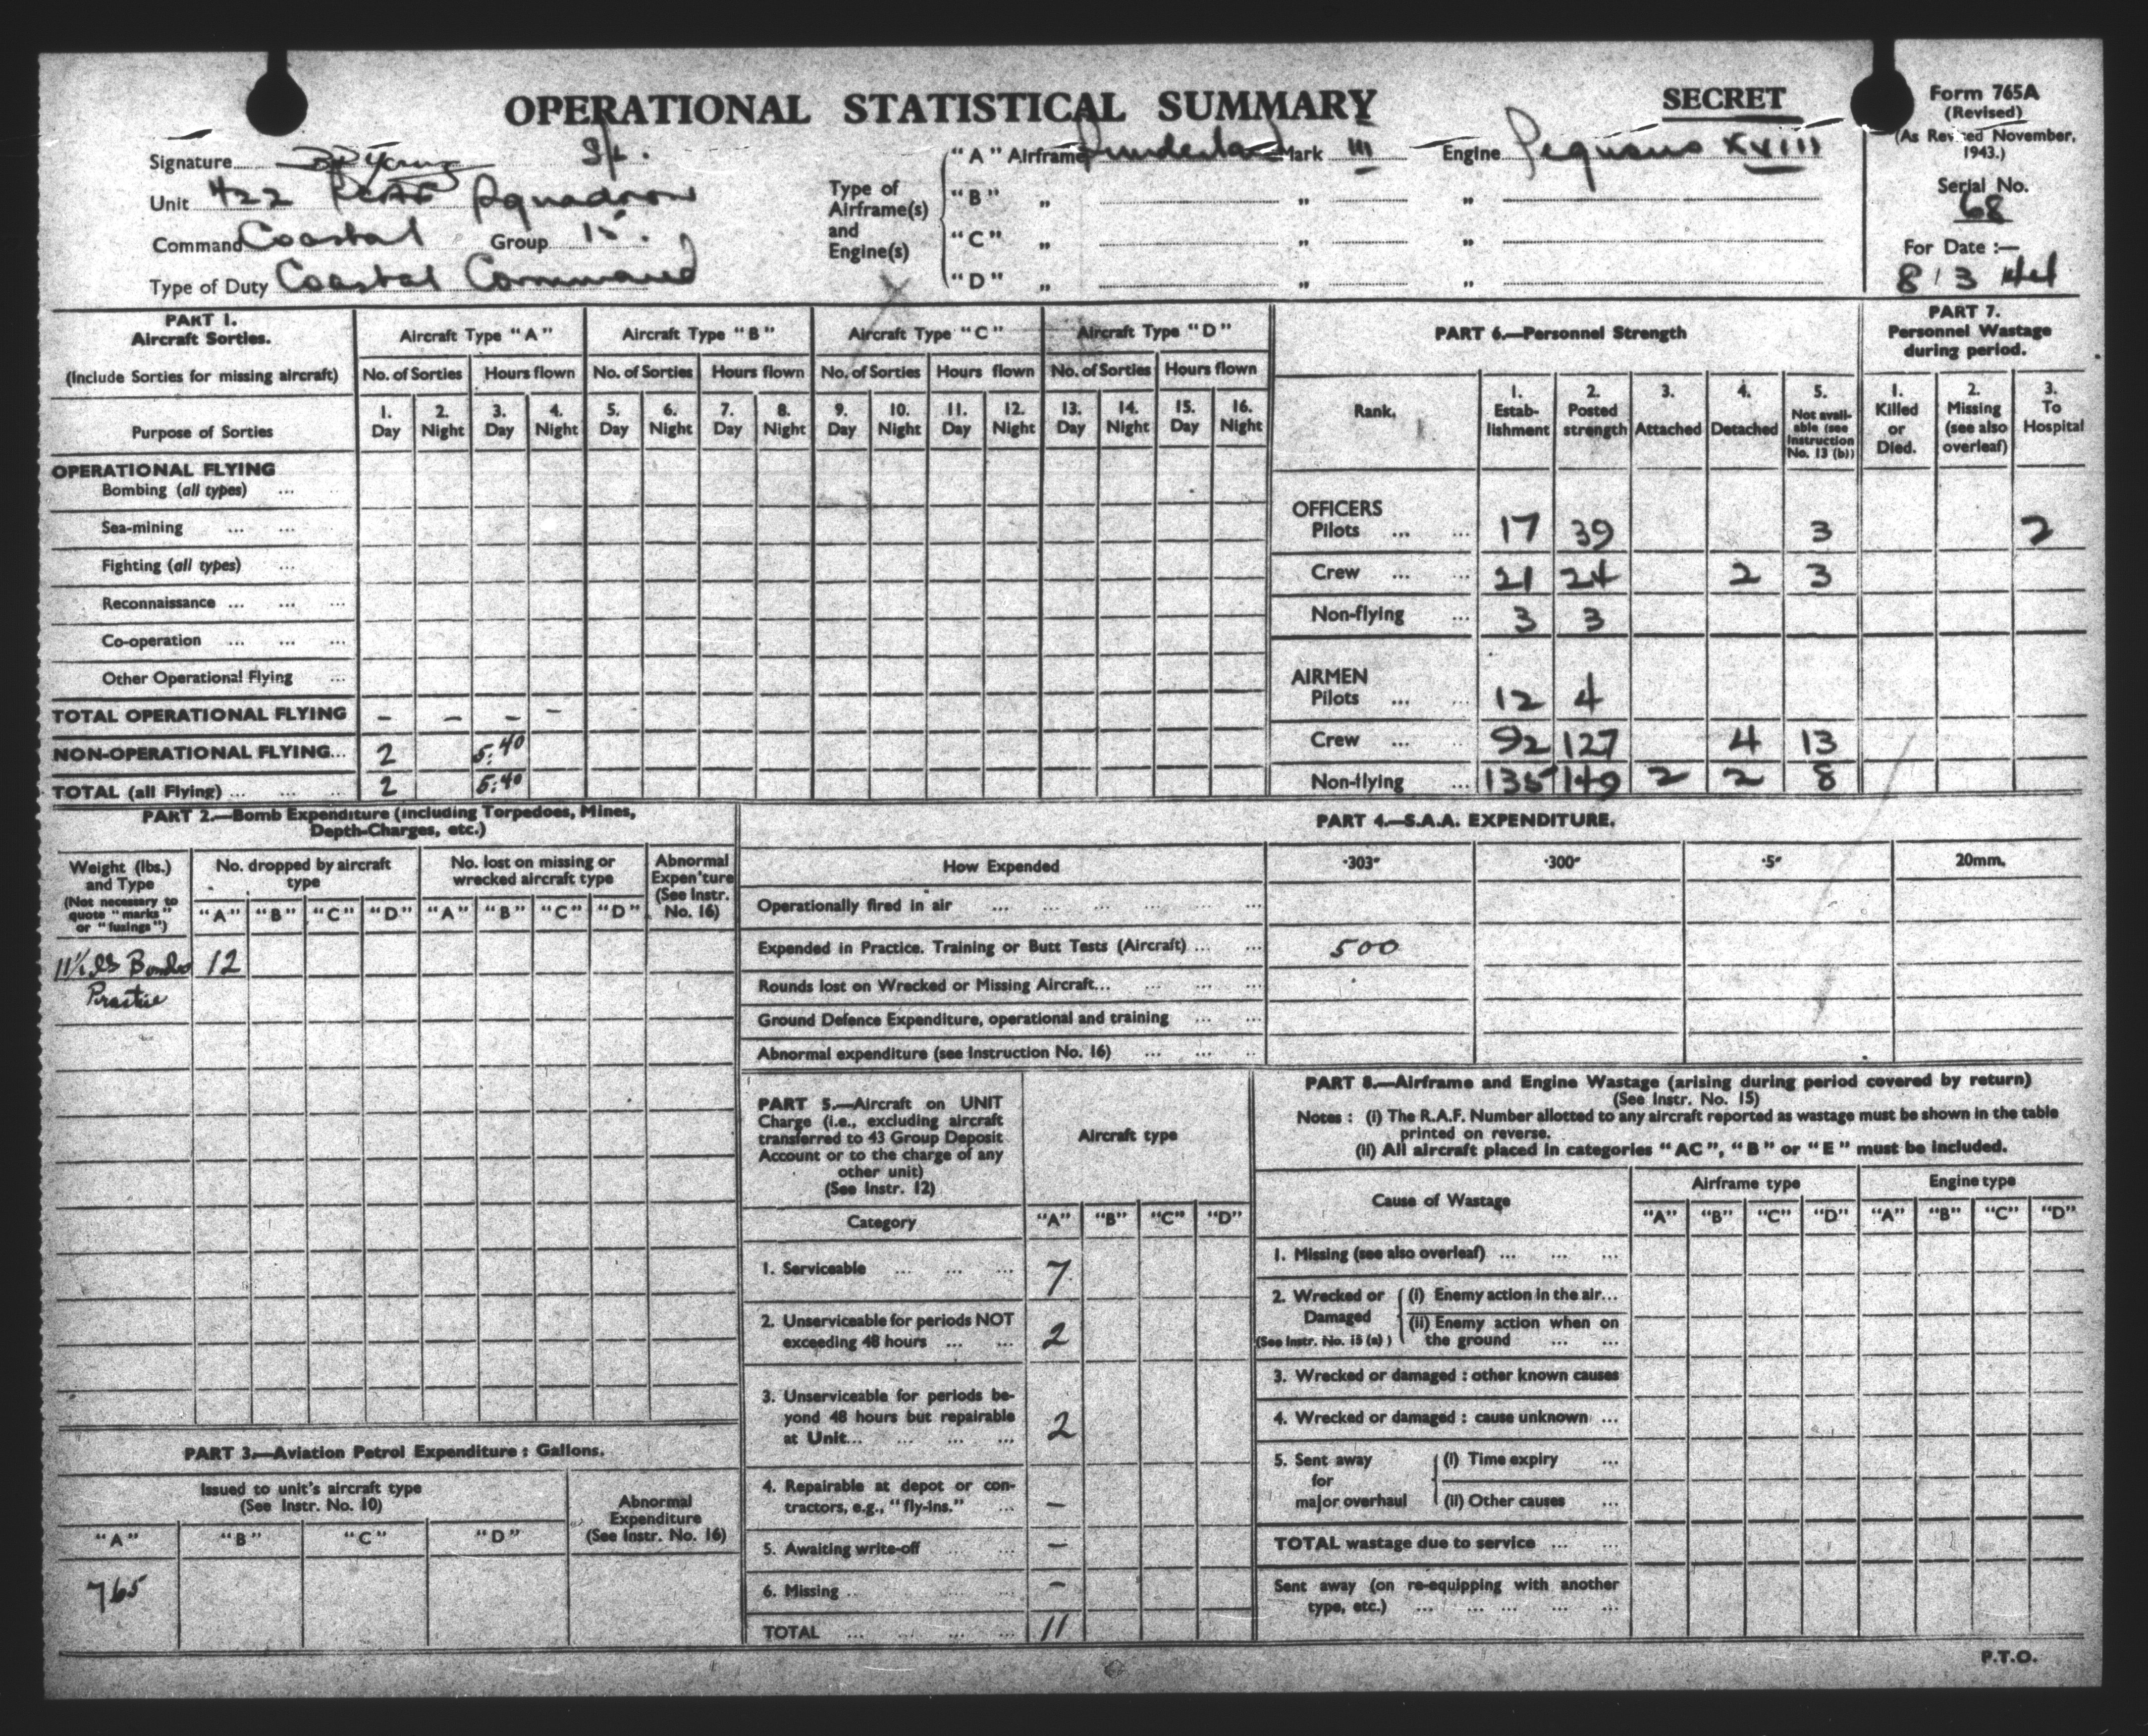 OPERATIONAL STATISTICAL SUMMARY
SECRET
Form 765A
(Revised)
(As Revised November,
1943.)
Serial No.
68
For Date :—
8 / 3 44
Signature
Unit 422 RCAF Squadron
Command Coastal Group 15.
Type of Duty Coastal Command
Type of
Airframe(s)
and
Engine(s)
"A" Airframe Sunderland Mark III Engine Pegasus XVIII
"B" " " "
"C" " " "
"D" " " "
PART 1.
Aircraft Sorties.
(Include Sorties for missing aircraft)
Purpose of Sorties
Aircraft Type "A" Aircraft Type "B" Aircraft Type "C" Aircraft Type "D"
No. of Sorties Hours flown No. of Sorties Hours flown No. of Sorties Hours flown No. of Sorties Hours flown
1. 2. 3. 4. 5. 6. 7. 8. 9. 10. 11. 12. 13. 14. 15. 16.
Day Night Day Night Day Night Day Night Day Night Day Night Day Night Day Night
OPERATIONAL FLYING
Bombing (all types) ...
Sea-mining ... ...
Fighting (all types) ...
Reconnaissance ... ... ...
Co-operation ... ... ...
Other Operational Flying ...
TOTAL OPERATIONAL FLYING – – – –
NON-OPERATIONAL FLYING... 2 5.40
TOTAL (all Flying) ... ... ... 2 5.40
PART 6.—Personnel Strength
Rank.
1. Estab-lishment
2. Posted strength
3. Attached
4. Detached
5. Not avail-able (see Instruction No. 13 (b))
PART 7.
Personnel Wastage
during period.
1. Killed or Died.
2. Missing (see also overleaf)
3. To Hospital
OFFICERS
Pilots ... ... 17 39 3 2
Crew ... ... 21 24 2 3
Non-flying ... 3 3
AIRMEN
Pilots ... ... 12 4
Crew ... ... 92 127 4 13
Non-flying ... 135 149 2 2 8
PART 2.—Bomb Expenditure (including Torpedoes, Mines,
Depth-Charges, etc.)
Weight (lbs.)
and Type
(Not necessary to
quote "marks"
or "fuzings")
No. dropped by aircraft
type
No. lost on missing or
wrecked aircraft type
Abnormal
Expen'ture
(See Instr.
No. 16)
"A" "B" "C" "D" "A" "B" "C" "D"
11½ lb Bombs 12
Practice
PART 4.—S.A.A. EXPENDITURE.
How Expended ·303" ·300" ·5" 20mm.
Operationally fired in air ... ... ... ... ...
Expended in Practice. Training or Butt Tests (Aircraft) ... ... 500
Rounds lost on Wrecked or Missing Aircraft... ... ... ...
Ground Defence Expenditure, operational and training ... ...
Abnormal expenditure (see Instruction No. 16) ... ... ..
PART 5.—Aircraft on UNIT
Charge (i.e., excluding aircraft
transferred to 43 Group Deposit
Account or to the charge of any
other unit)
(See Instr. 12)
Aircraft type
Category "A" "B" "C" "D"
1. Serviceable ... ... ... 7
2. Unserviceable for periods NOT
exceeding 48 hours ... ... 2
3. Unserviceable for periods be-
yond 48 hours but repairable
at Unit... ... ... ... 2
4. Repairable at depot or con-
tractors, e.g., "fly-ins." ... –
5. Awaiting write-off ... ... –
6. Missing .. ... ... –
TOTAL ... ... ... ... 11
PART 8.—Airframe and Engine Wastage (arising during period covered by return)
(See Instr. No. 15)
Notes : (i) The R.A.F. Number allotted to any aircraft reported as wastage must be shown in the table
printed on reverse.
(ii) All aircraft placed in categories "AC", "B" or "E" must be included.
Cause of Wastage
Airframe type Engine type
"A" "B" "C" "D" "A" "B" "C" "D"
1. Missing (see also overleaf) ... ... ...
2. Wrecked or Damaged (See Instr. No. 15 (a) )
(i) Enemy action in the air...
(ii) Enemy action when on
the ground ... ...
3. Wrecked or damaged : other known causes
4. Wrecked or damaged : cause unknown ...
5. Sent away
for
major overhaul
(i) Time expiry ...
(ii) Other causes ...
TOTAL wastage due to service ... ...
Sent away (on re-equipping with another
type, etc.) ... ... ... ... ...
PART 3.—Aviation Petrol Expenditure : Gallons.
Issued to unit's aircraft type
(See Instr. No. 10)
Abnormal
Expenditure
(See Instr. No. 16)
"A" "B" "C" "D"
765
P.T.O.